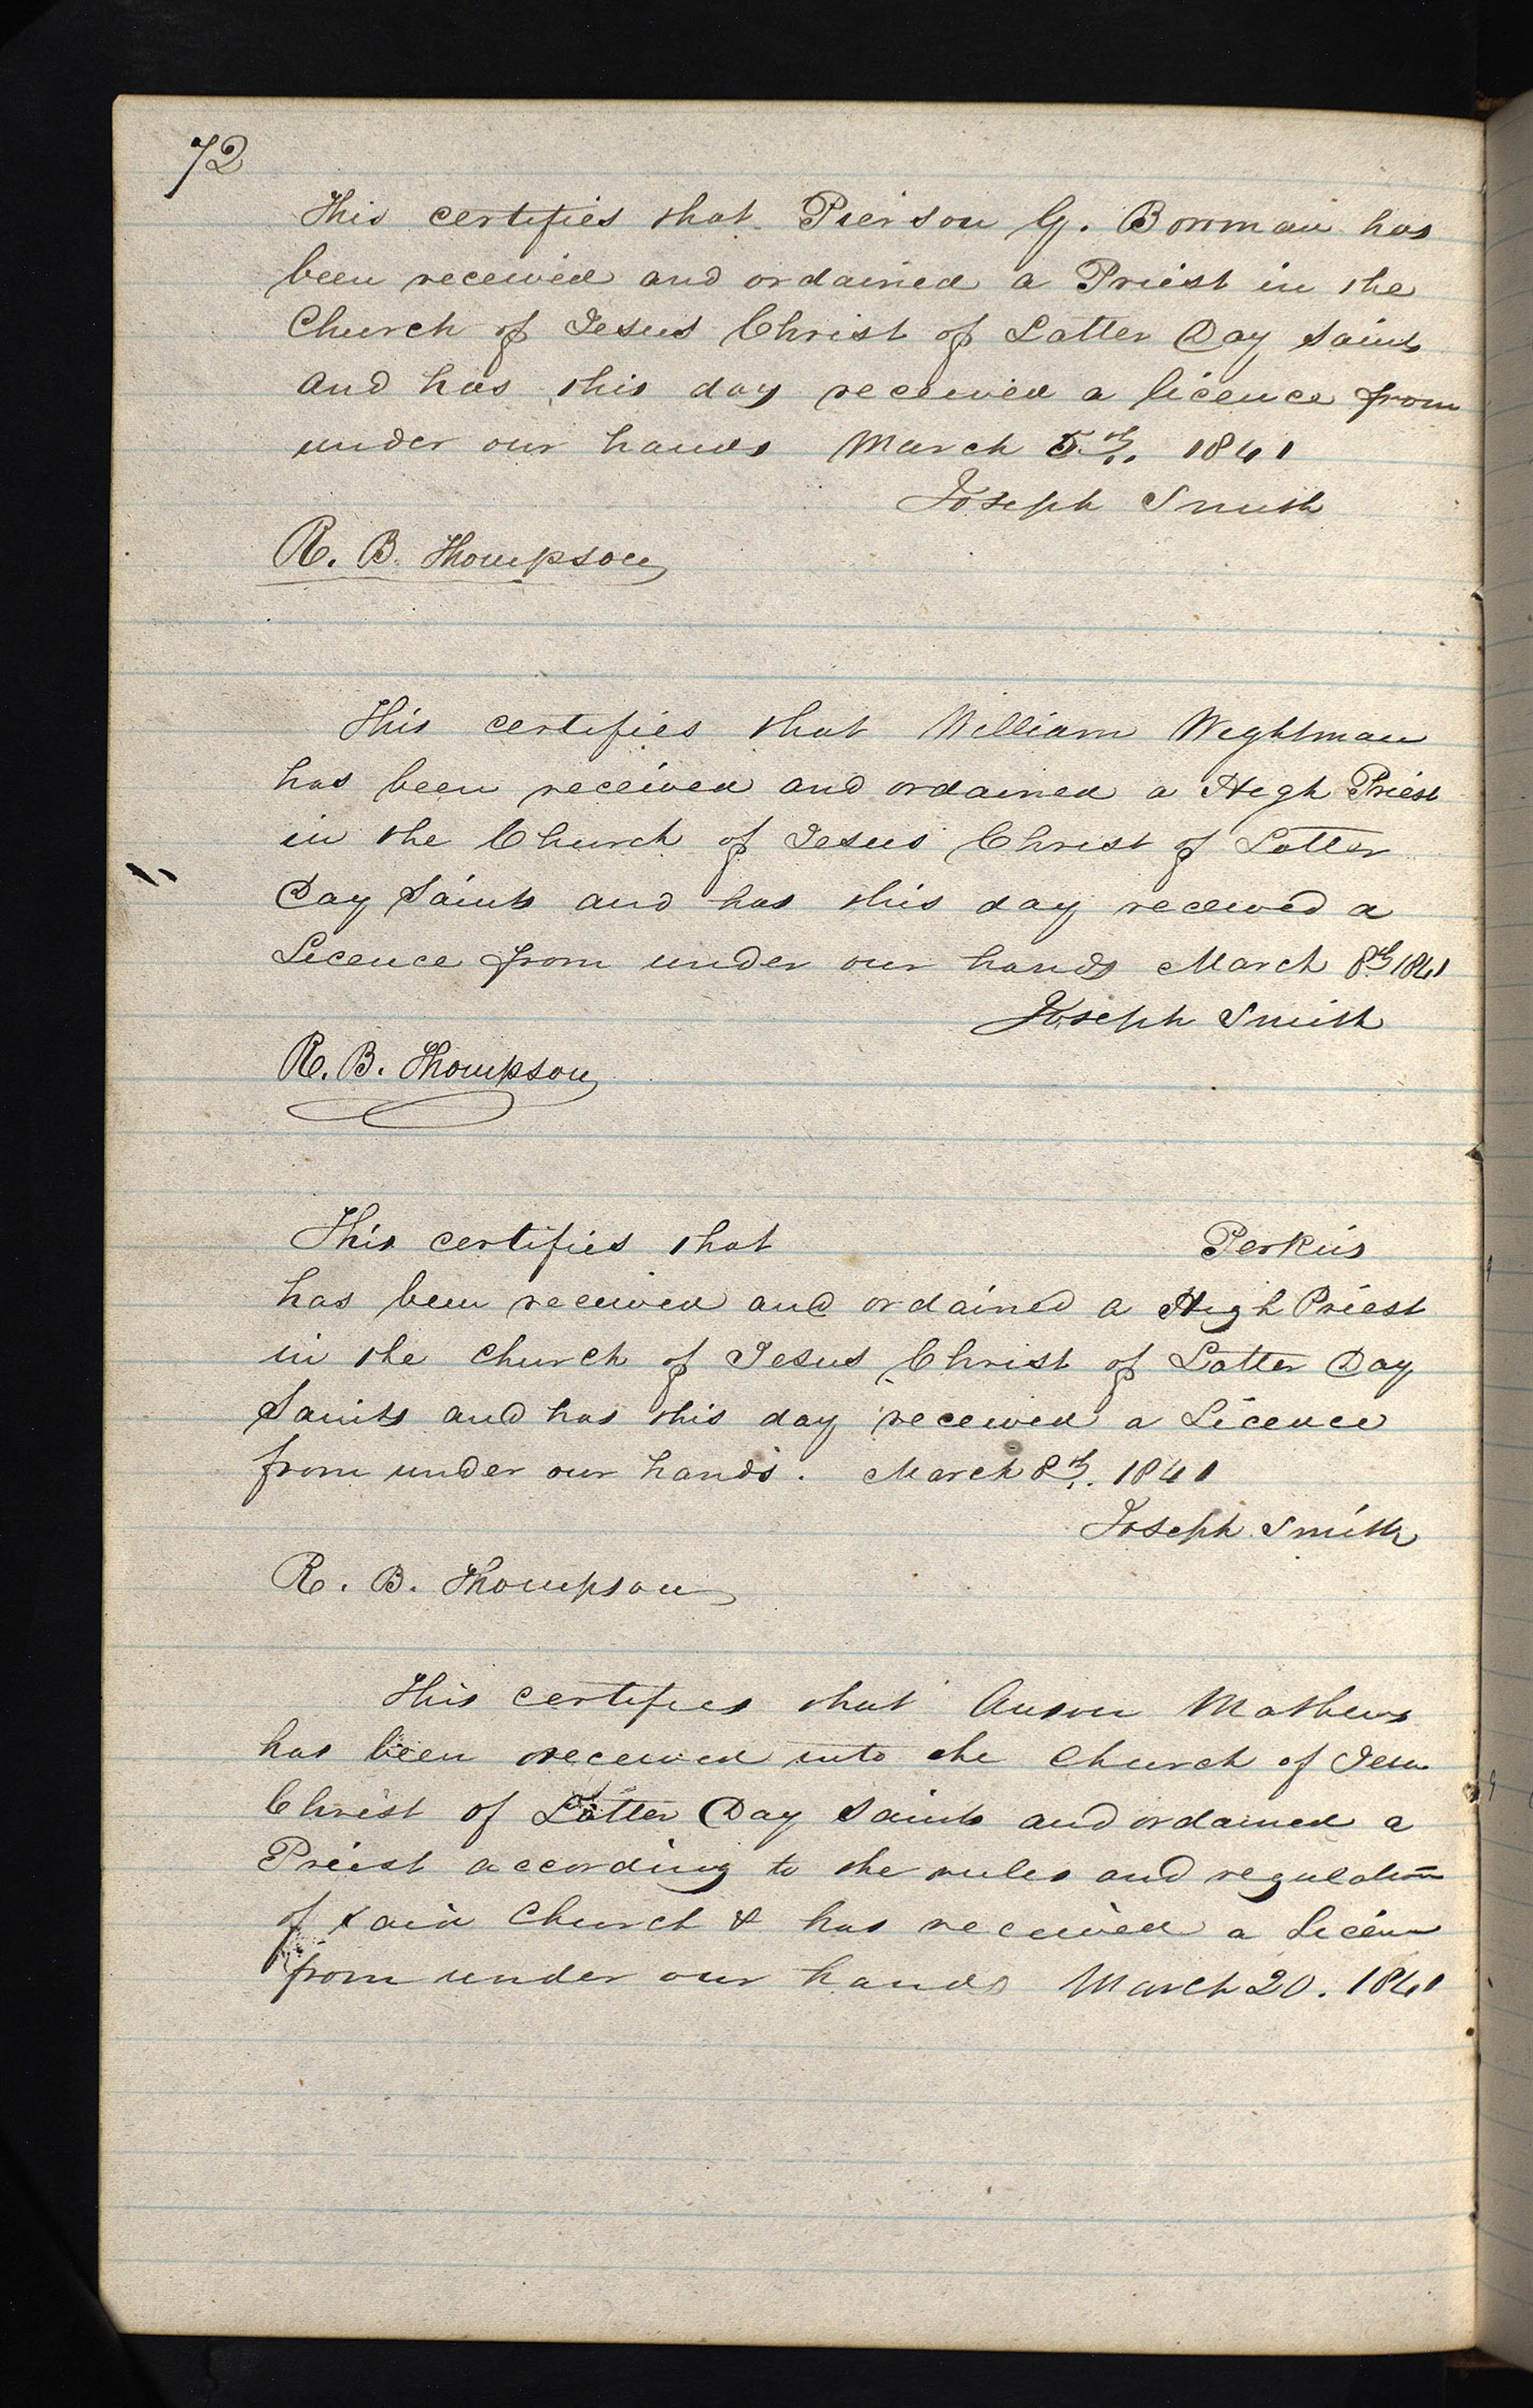 72
This certifies that Pierson G. Bowman has
been received and ordained a Priest in the
Church of Jesus Christ of Latter Day Saints
and has this day received a licence from
under our hands March 5th. 1841
Joseph Smith
R. B. Thompson
This certifies that William Wightman
has been received and ordained a High Priest
in the Church of Jesus Christ of Latter
Day Saints and has this day received a
Licence from under our hands March 8th 1841
Joseph Smith
R. B. Thompson
This certifies that Perkins
has been received and ordained a High Priest
in the Church of Jesus Christ of Latter Day
Saints and has this day received a Licence
from under our hands. March 8th. 1841
Joseph Smith
R. B. Thompson
This certifies that Anson Mathews
has been received into the Church of Jesus
Christ of Latter Day Saints and ordained a
Priest according to the rules and regulation
of said Church & has received a Licence
from under our hands March 20. 1841